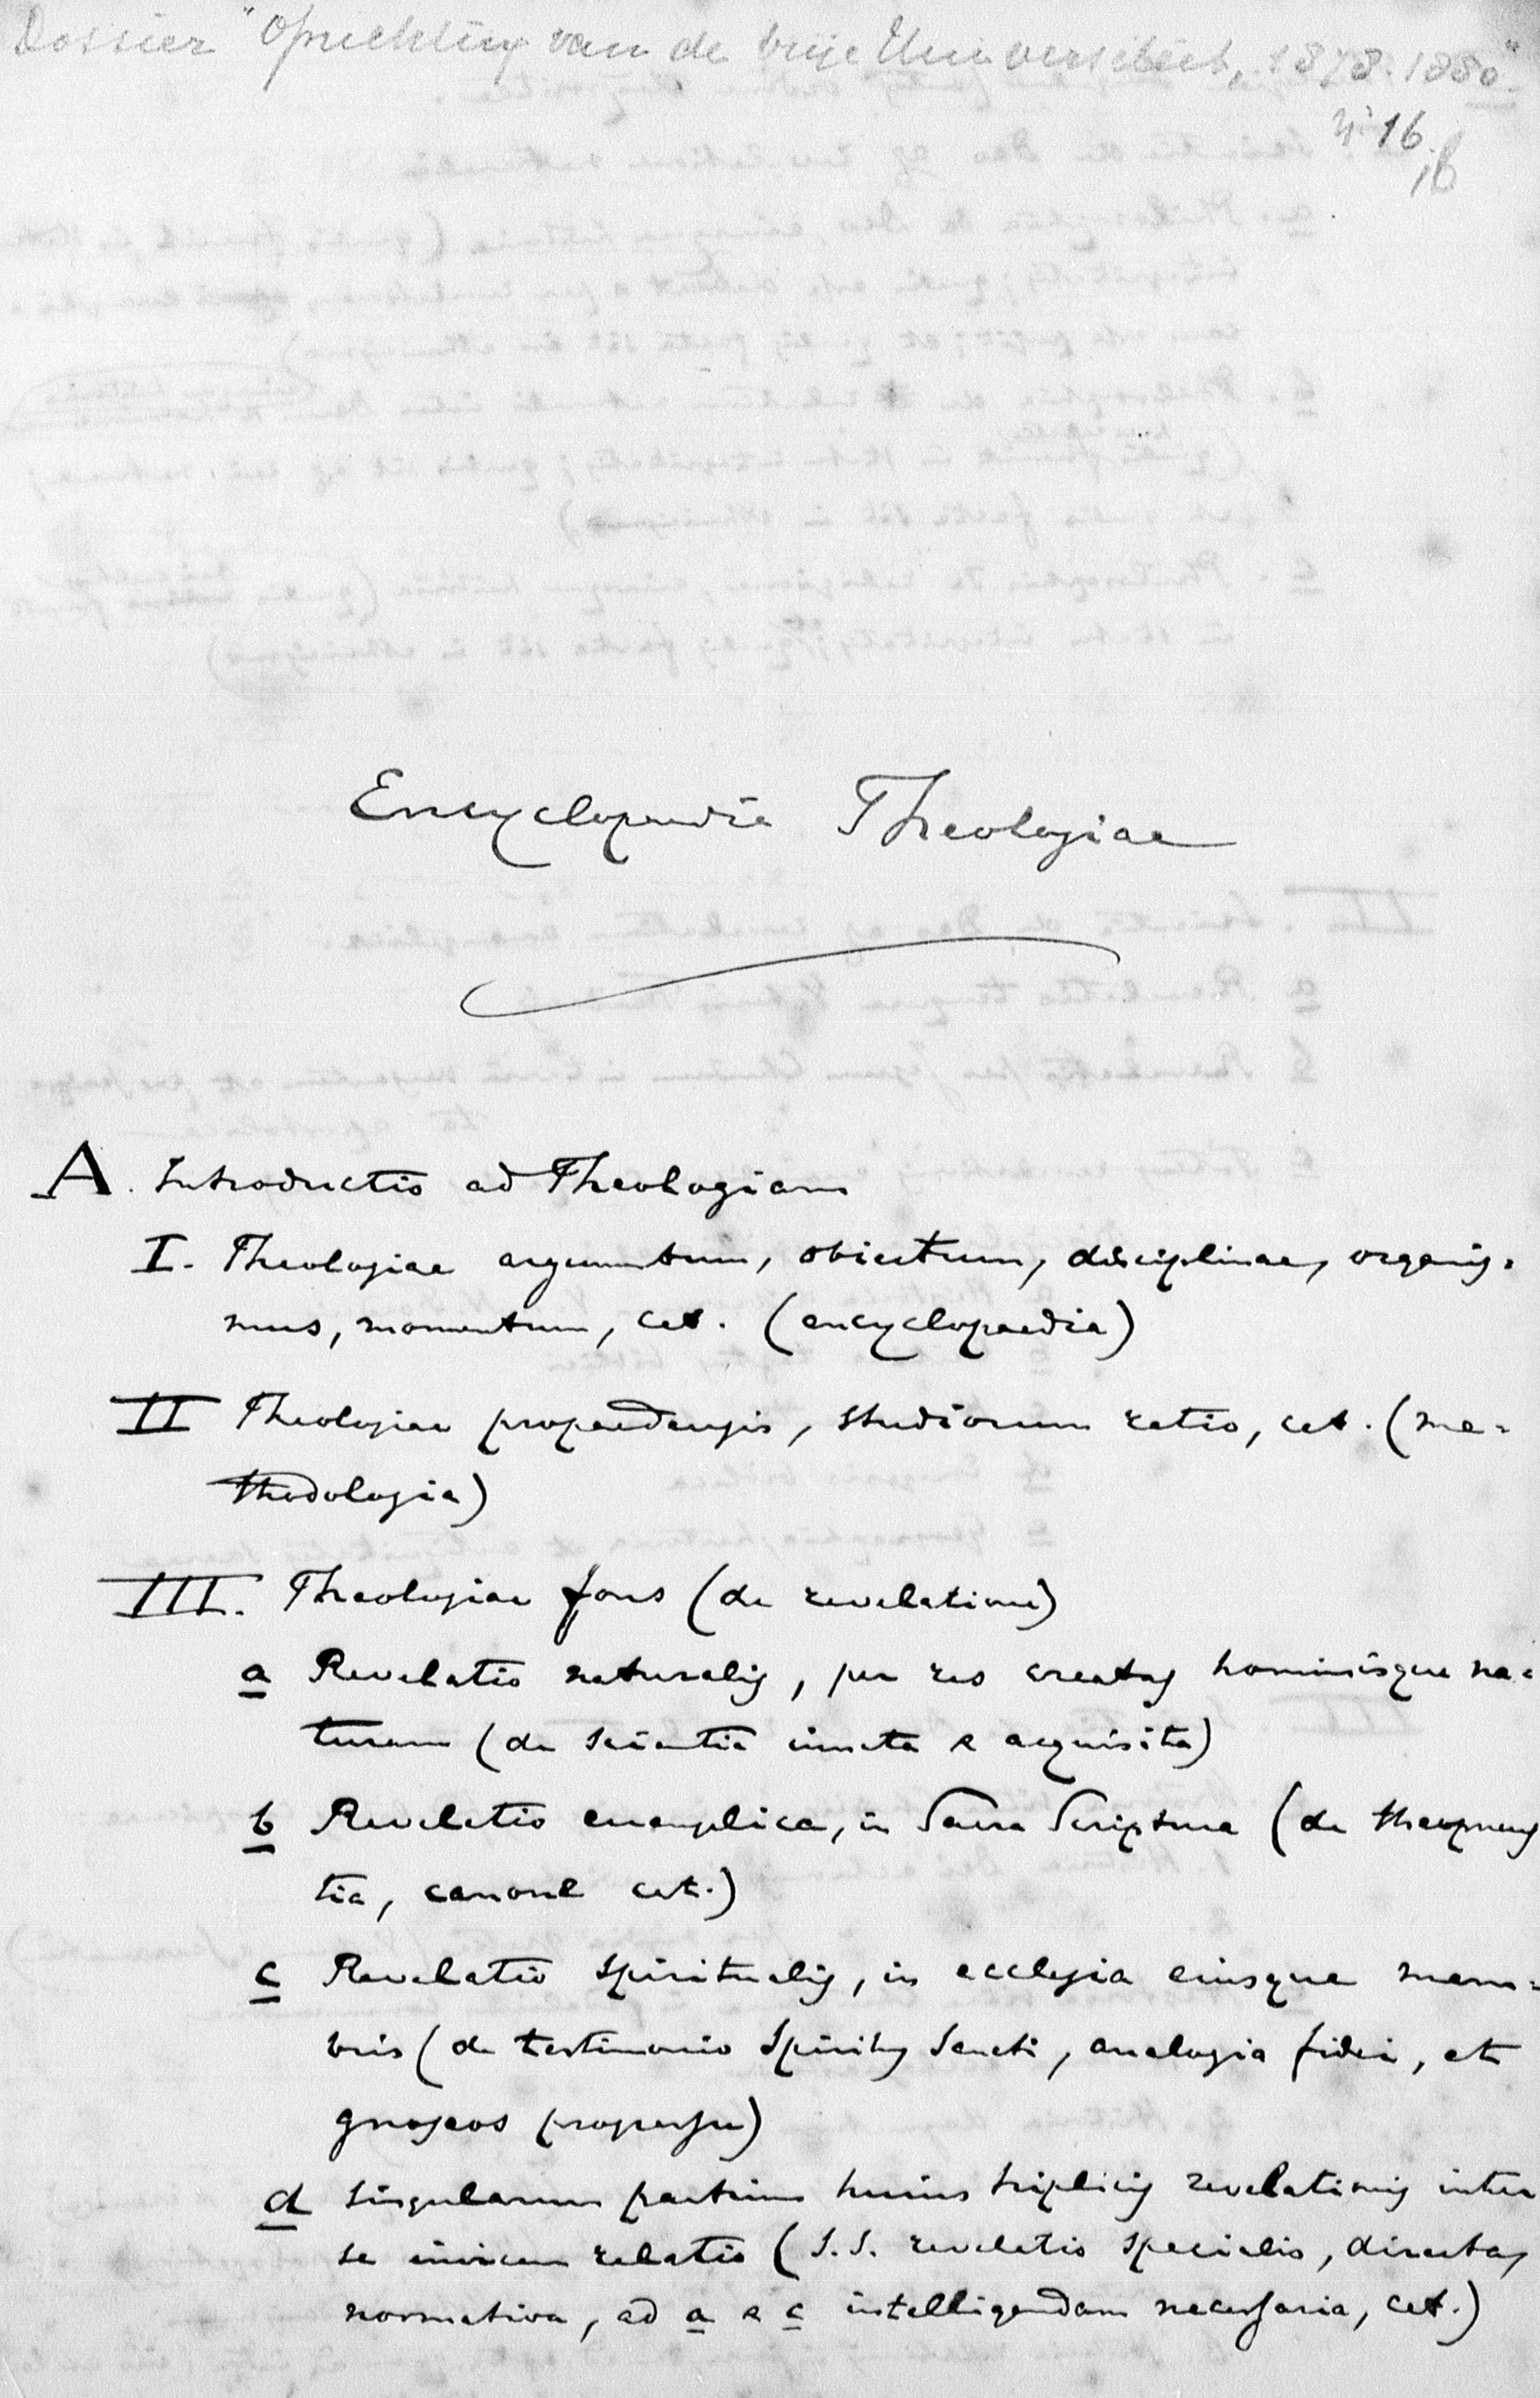 Dossier "Oprichting van de Vrije Universiteit, 1878-1880"
No 16
16
Encyclopaedia Theologiae
A. Introductio ad Theologiam
I. Theologiae argumentum, obiectum, disciplinae, organis-
mus, momentum, cet. (encyclopaedia)
II Theologiae propaedeusis, studiorum ratio, cet. (me-
thodologia)
III. Theologiae fons (de revelatione)
a Revelatio naturalis, per res creatas hominisque na-
turam (de scientia innata & acquisita)
b Revelatio euangelica, in Sacra Scriptura (de theopneus
tia, canone cet.)
c Revelatio spiritualis, in ecclesia eiusque mem-
bris (de testimonio Spiritus Sancti, analogia fidei, et
gnoseos progressu)
d Singularum partium huius triplicis revelationis inter
se invicem relatio (S.S. revelatio specialis, directa,
normativa, ad a & c intelligendam necessaria, cet.)